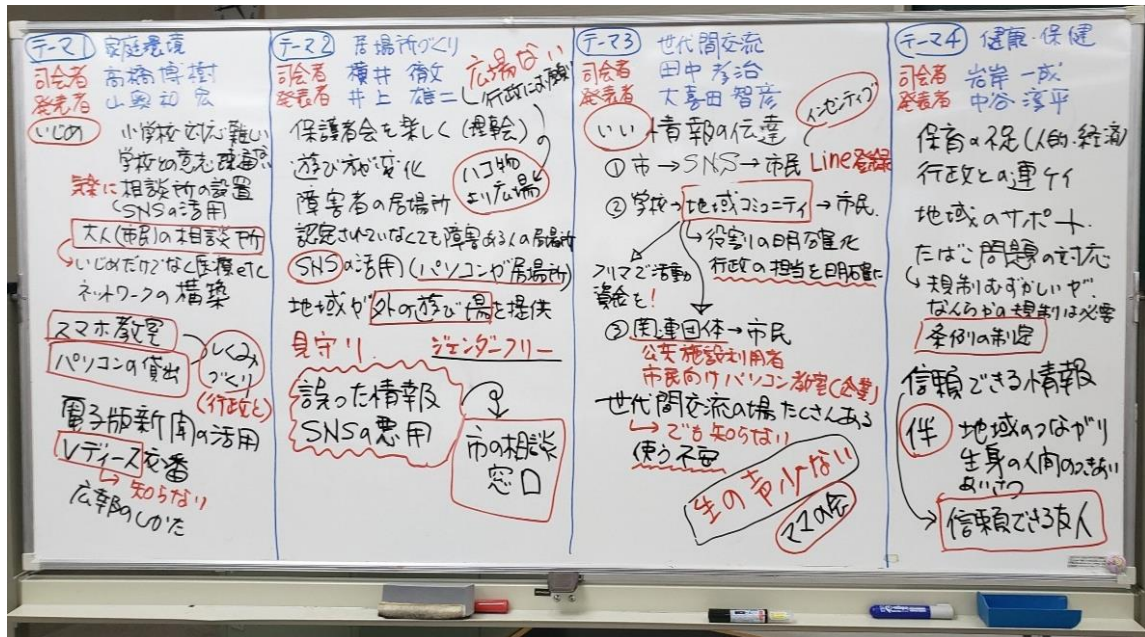 テーマ1 家庭環境
司会者 高橋博樹
発表者 山奥初宏
いじめ 小学校対応難しい
学校との意志疎通
気楽に相談所の設置
SNSの活用
大人(市民)の相談所
いじめだけでなく医療etc
ネットワークの構築
スマホ教室
パソコンの貸出
しくみづくり
(行政と)
電子版新聞の活用
Vディース交番
知らない
広報のしかた
テーマ2 居場所づくり
司会者 横井 徹
発表者 井上 雄二
広場ない
行政にお願い
保護者会を楽しく(理事会)
遊び方が変化
ハコ物より広場
障害者の居場所
認定されていなくても障害ある人の居場所
SNSの活用(パソコンが居場所)
地域が外の遊び場を提供
見守り ジェンダーフリー
誤った情報
SNSの悪用
市の相談窓口
テーマ3 世代間交流
司会者 田中孝治
発表者 大喜田智彦
インセンティブ
いい情報の伝達
①市→SNS→市民 Line登録
②学校→地域コミュニティ→市民.
役割の明確化
行政の担当を明確に
フリマで活動
資金を!
③関連団体→市民
公共施設利用者
市民向けパソコン教室(企業)
世代間交流の場たくさんある
でも知らない
使う不安
生の声少ない
ママの会
テーマ4 健康・保健
司会者 岩岸 一成
発表者 中谷淳平
保育の不足(人的・経済)
行政との連ケイ
地域のサポート
たばこ問題の対応
規制むずかしいが.
なんらかの規制は必要
条例の制定
信頼できる情報
伴 地域のつながり
生身の人間のつきあい
あいさつ
信頼できる友人